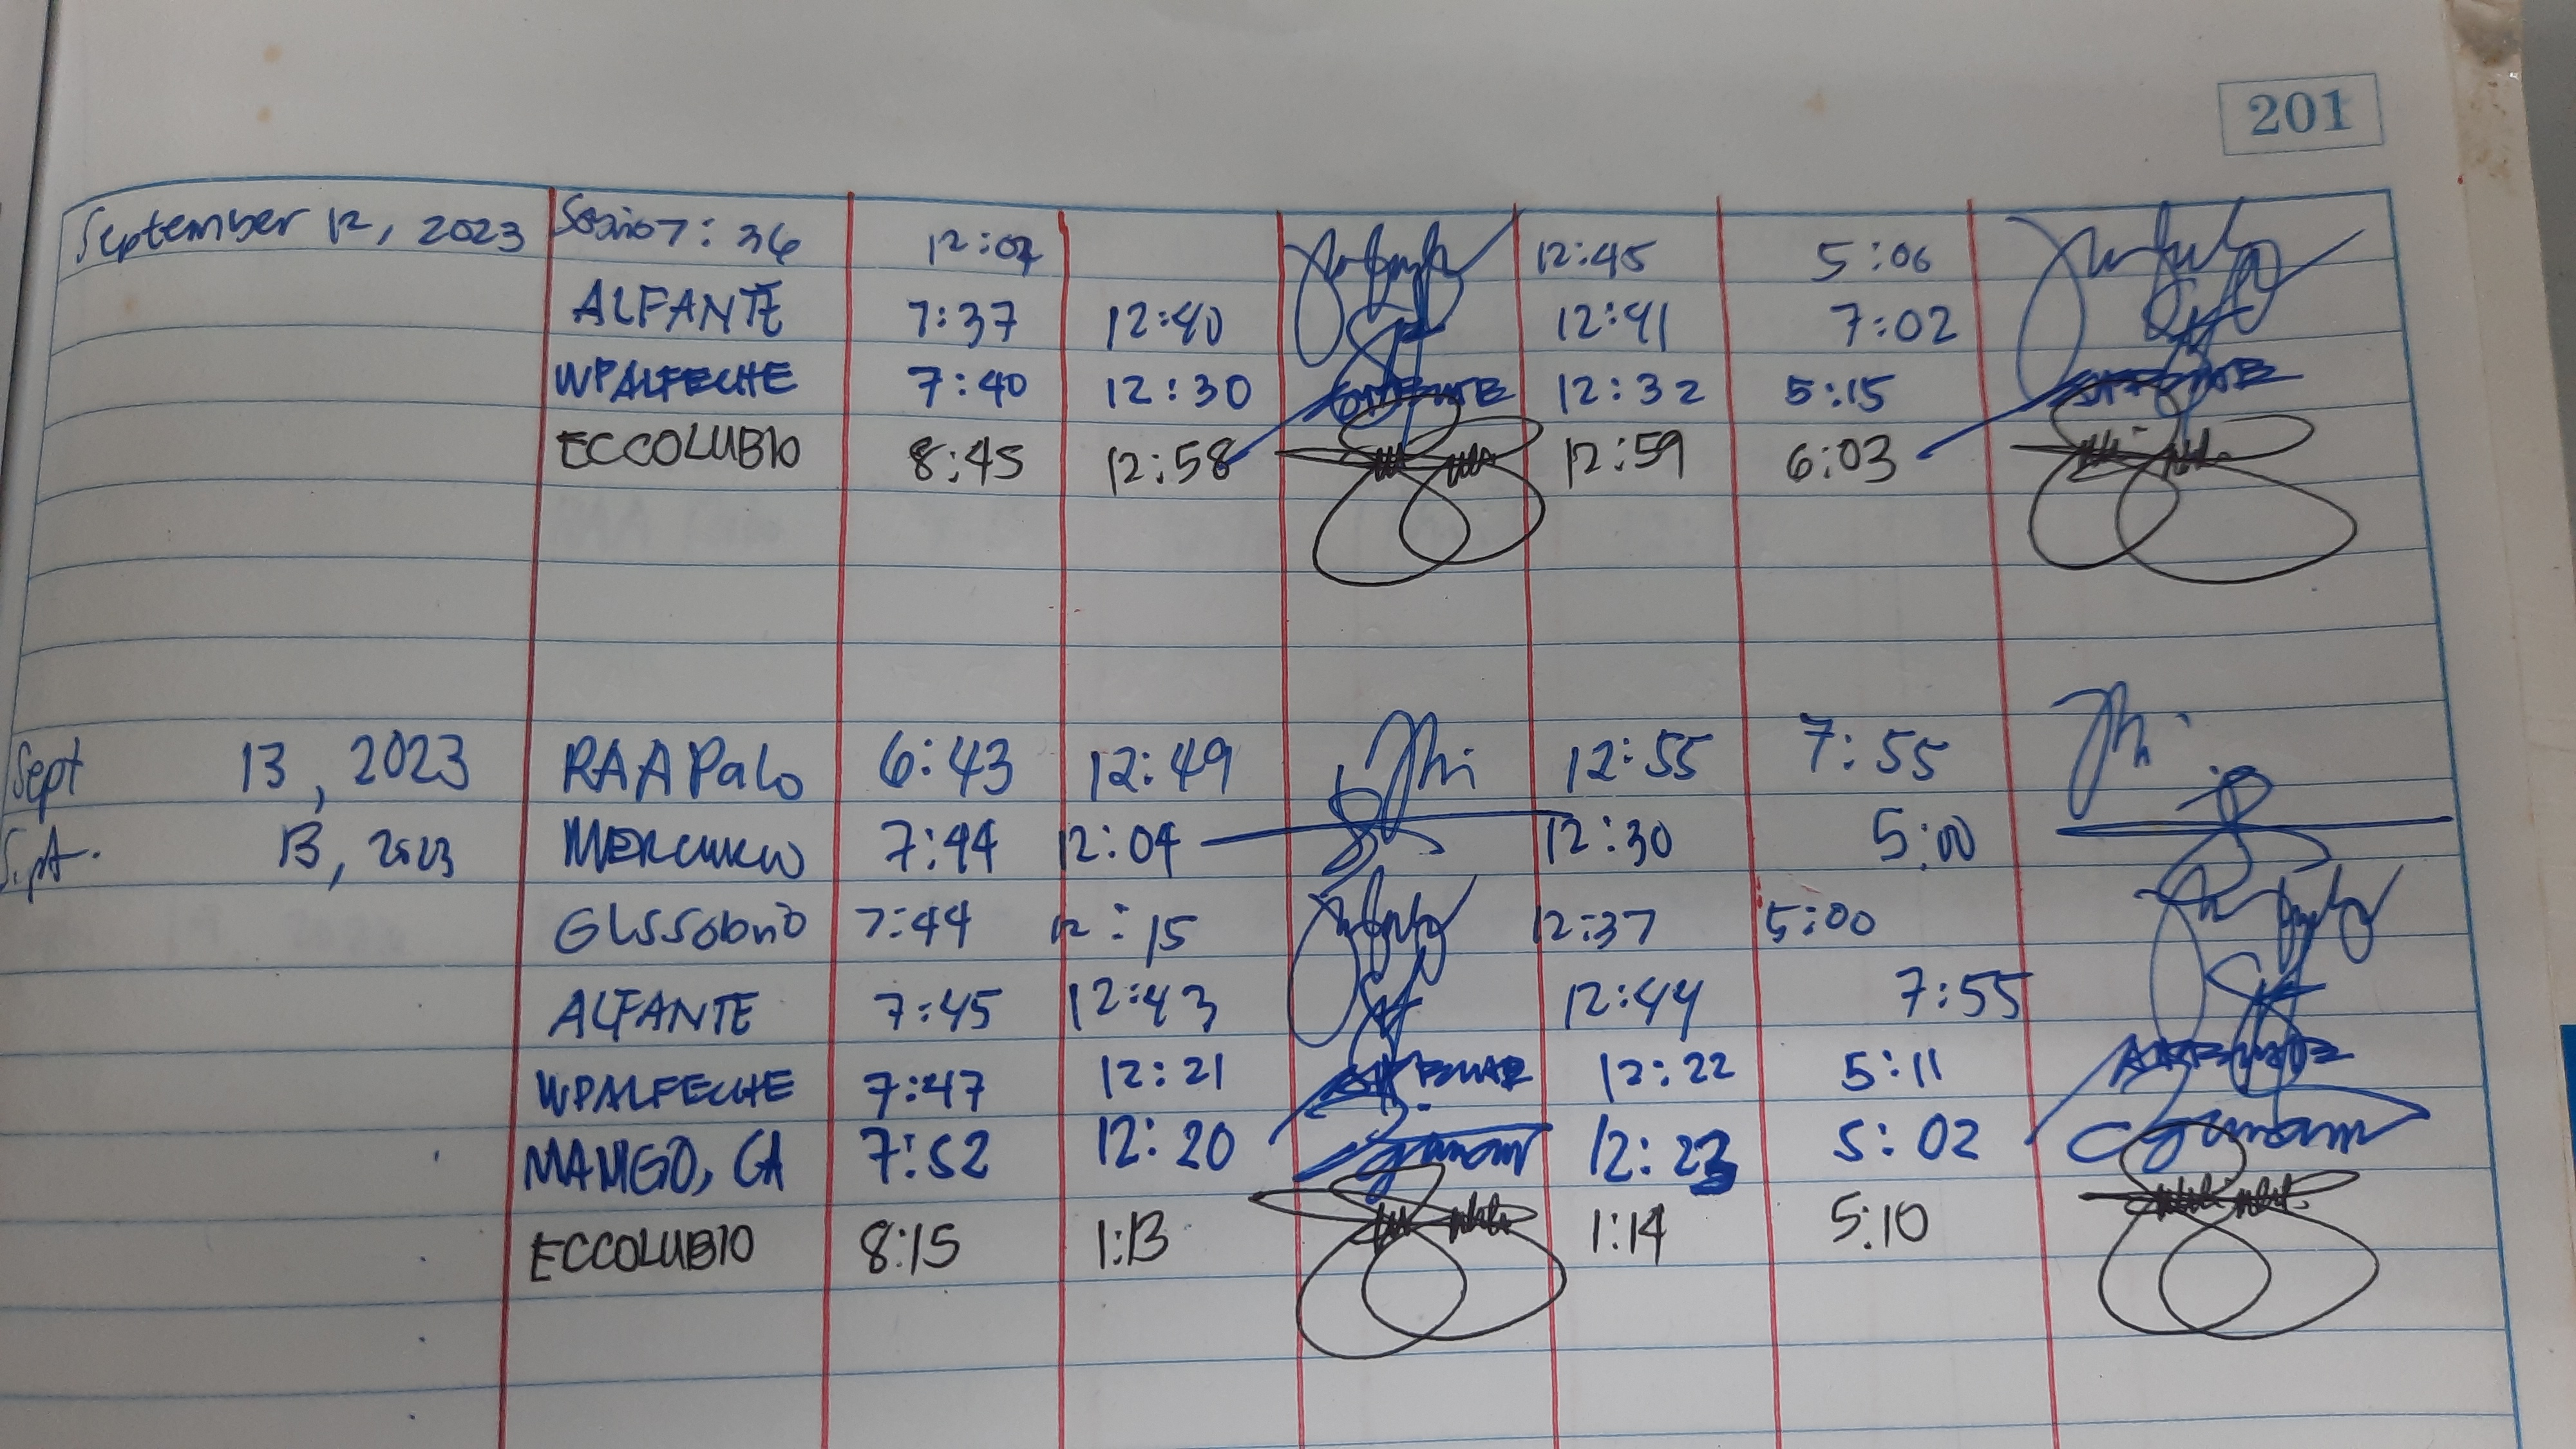 201
September 12, 2023 7:36 12:04 12:45 5:06
ALFANTE 7:37 12:40 12:41 7:02
WPALFECHE 7:40 12:30 12:32 5:15
ECCOLUBIO 8:45 12:58 12:59 6:03
Sept 13, 2023 RAAPalo 6:43 12:49 12:55 7:55
Sept. 13, 2023 MERCURIO 7:44 12:04 12:30 5:00
GLSSobrio 7:44 12:15 12:37 5:00
ALFANTE 7:45 12:43 12:44 7:55
WPALFECHE 7:47 12:21 12:22 5:11
MANIGO, CA 7:52 12:20 12:23 5:02
ECCOLUBIO 8:15 1:13 1:14 5:10